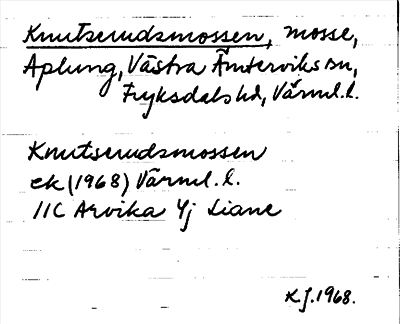 Knutserudsmossen, mosse,
Aplung, Västra Ämterviks sn,
Fryksdals hd, Värml. l.
Knutserudsmossen
ek (1968) Värml. l.
11C Arvika 4j Liane
K J. 1968.